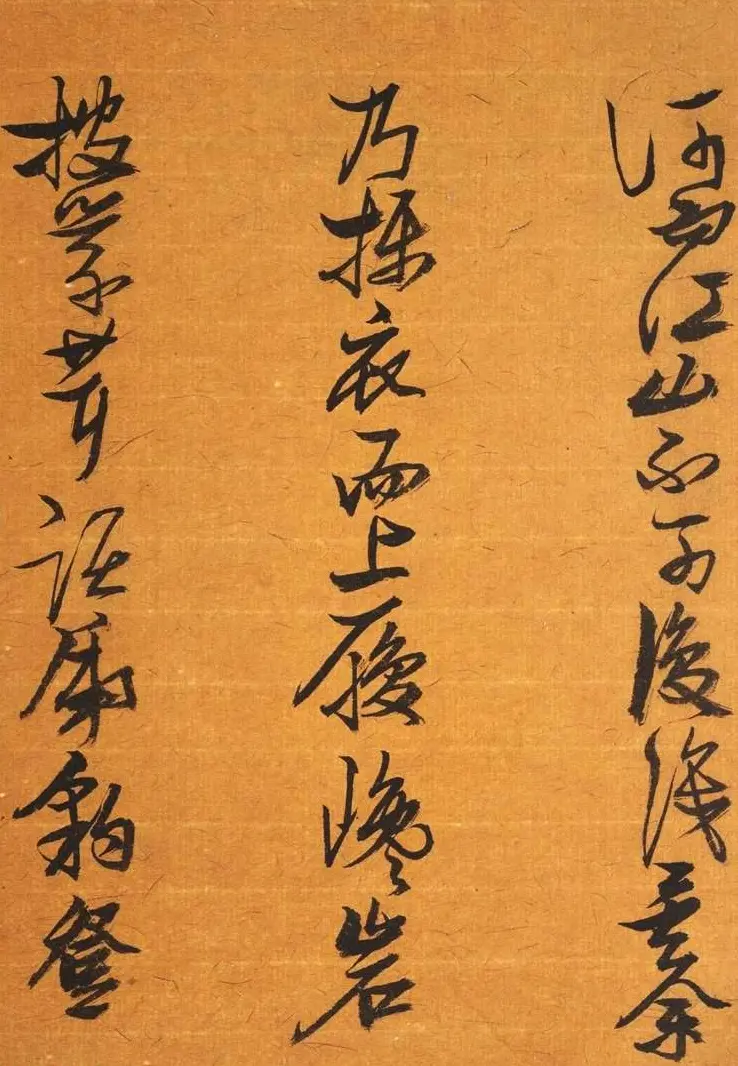 何而江山不可復識矣余
乃攝衣而上履巉岩
披蒙茸踞虎豹登